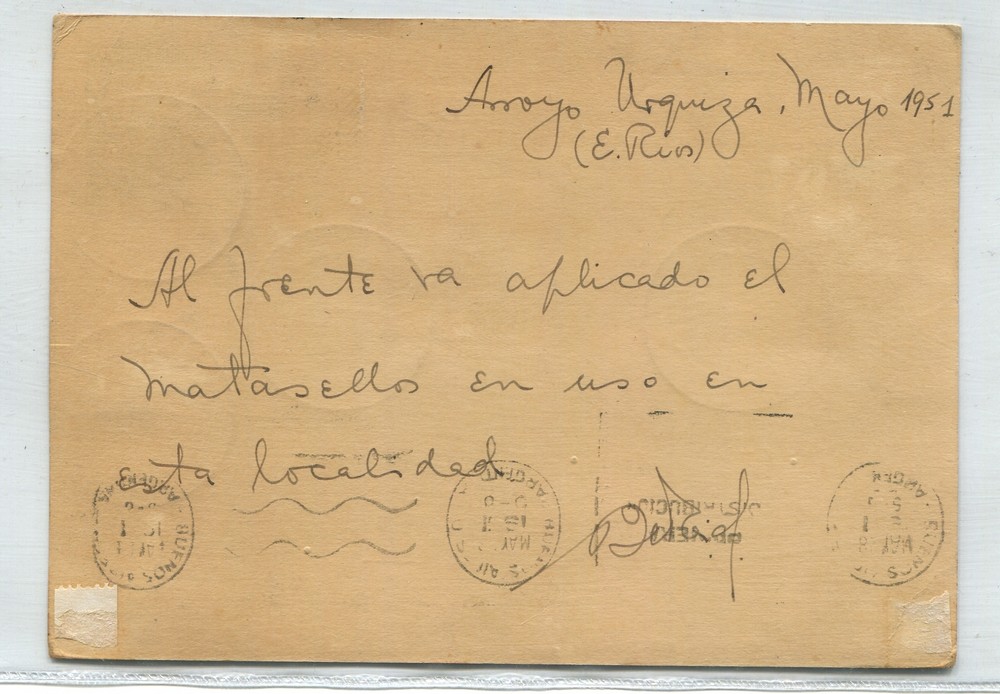 Arroyo Urquiza, Mayo 1951
(E. Rios)
Al frente va aplicado el
matasellos en uso en
esta localidad
BUENOS AIRES
ARGENTINA
MAY
BUENOS AIRES
ARGENTINA
MAY
BUENOS
ARGEN
MAY